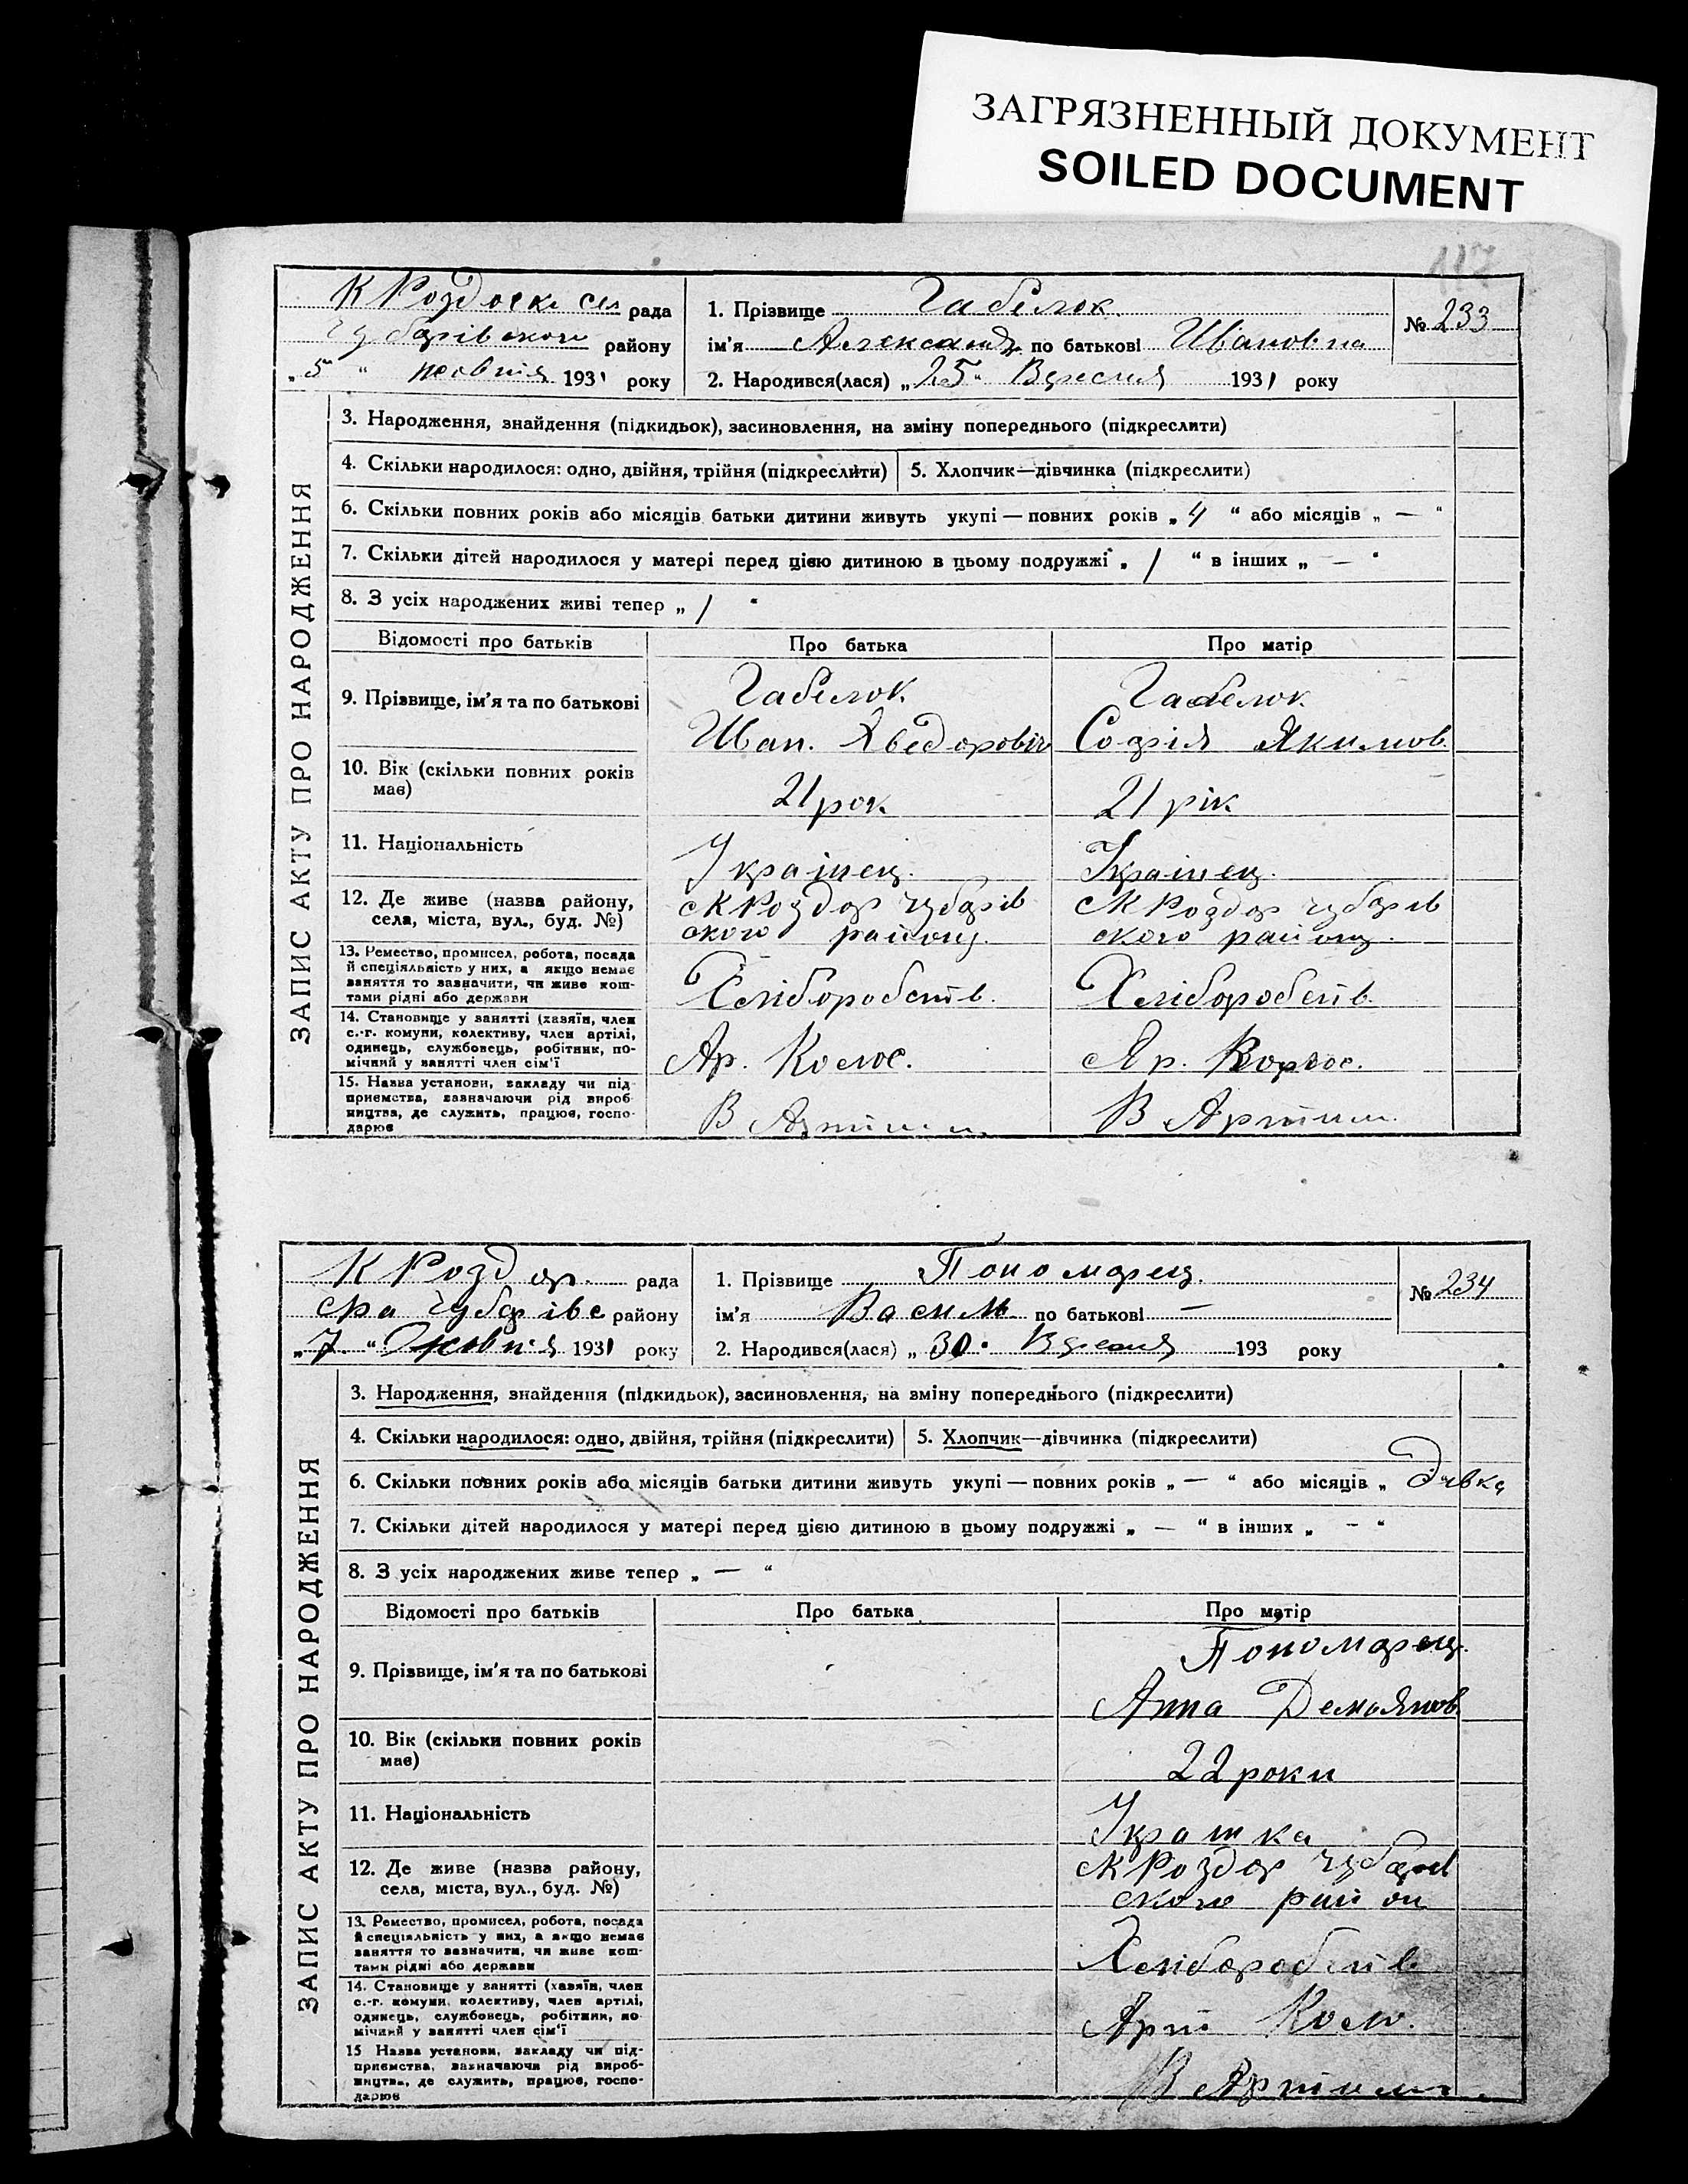 ЗАГРЯЗНЕННЫЙ ДОКУМЕНТ
SOILED DOCUMENT
117
рада
району
„5“ 1931 року
1. Прізвище Габелок
ім'я Александр по батькові Ивановна
2. Народився(лася) „25“ Вересня 1931 року
№ 233
ЗАПИС АКТУ ПРО НАРОДЖЕННЯ
3. Народження, знайдення (підкидьок), засиновлення, на зміну попереднього (підкреслити)
4. Скільки народилося: одно, двійня, трійня (підкреслити)
5. Хлопчик—дівчинка (підкреслити)
6. Скільки повних років або місяців батьки дитини живуть укупі — повних років „4“ або місяців „—“
7. Скільки дітей народилося у матері перед цією дитиною в цьому подружжі „1“ в інших „—“
8. З усіх народжених живі тепер „1“
Відомості про батьків
Про батька
Про матір
9. Прізвище, ім'я та по батькові
Габелок
Иван.
Габелок
Софія Якимов
10. Вік (скільки повних років
має)
21 рок
21 рік
11. Національність
Українец
Українец
12. Де живе (назва району,
села, міста, вул., буд. №)
К Роздор Чубарів
ского району
К Роздор Чубарів
ского району
13. Ремество, промисел, робота, посада
й спеціяльність у них, а якщо немає
заняття то зазначити, чи живе кош-
тами рідні або держави
Хліборобств
Хліборобств
14. Становище у занятті (хазяїн, член
с.-г. комуни, колективу, член артілі,
одинець, службовець, робітник, по-
мічний у занятті член сім'ї
Ар.
Ар.
15. Назва установи, закладу чи під-
приємства, зазначаючи рід вироб-
ництва, де служить, працює, госпо-
дарює
В Артили
В Артили
К Роздор. рада
району
„7.“ Жовтня 1931 року
1. Прізвище Пономарец
ім'я Василь по батькові —
2. Народився(лася) „30“ Вересня 193 року
№ 234
ЗАПИС АКТУ ПРО НАРОДЖЕННЯ
3. Народження, знайдення (підкидьок), засиновлення, на зміну попереднього (підкреслити)
4. Скільки народилося: одно, двійня, трійня (підкреслити)
5. Хлопчик—дівчинка (підкреслити)
6. Скільки повних років або місяців батьки дитини живуть укупі — повних років „—“ або місяців „ Дівка
7. Скільки дітей народилося у матері перед цією дитиною в цьому подружжі „—“ в інших „—“
8. З усіх народжених живе тепер „—“
Відомості про батьків
Про батька
Про матір
9. Прізвище, ім'я та по батькові
Пономарец
Анна Демьянов
10. Вік (скільки повних років
має)
22 роки
11. Національність
Українка
12. Де живе (назва району,
села, міста, вул., буд. №)
К Роздор Чубарів
ского район
13. Ремество, промисел, робота, посада
й спеціяльність у них, а якщо немає
заняття то зазначити, чи живе кош-
тами рідні або держави
Хліборобств
14. Становище у занятті (хазяїн, член
с.-г. комуни, колективу, член артілі,
одинець, службовець, робітник, по-
мічний у занятті член сім'ї
Арт
15 Назва установи, закладу чи під-
приємства, зазначаючи рід вироб-
ництва, де служить, працює, госпо-
дарює
В Артили